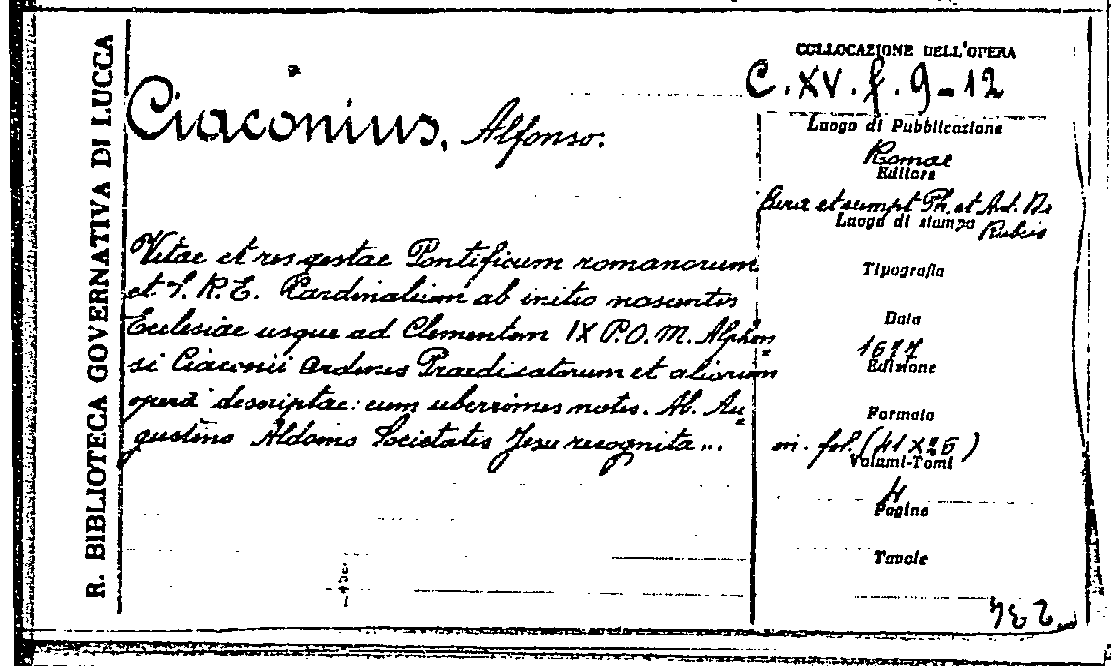 R. BIBLIOTECA GOVERNATIVA DI LUCCA
Ciaconius, Alfonso.
Vitae et res gestae Pontificum romanorum
et S. R. E. Cardinalium ab initio nascentis
Ecclesiae usque ad Clementem IX P.O.M. Alphon=
si Ciaconii Ordinis Praedicatorum et aliorum
opera descriptae: cum uberrimis notis. Ab Au=
gustino Aldoino Societatis Jesu recognita...
COLLOCAZIONE DELL'OPERA
C. XV. f. 9-12
Luogo di Pubblicazione
Romae
Editore
Cura et sumpt Ph. et Ant. De
Luogo di stampa
Rubeis
Tipografia
Data
1677
Edizione
Formato
in. fol. (41 X 26)
Volumi-Tomi
4
Pagine
Tavole